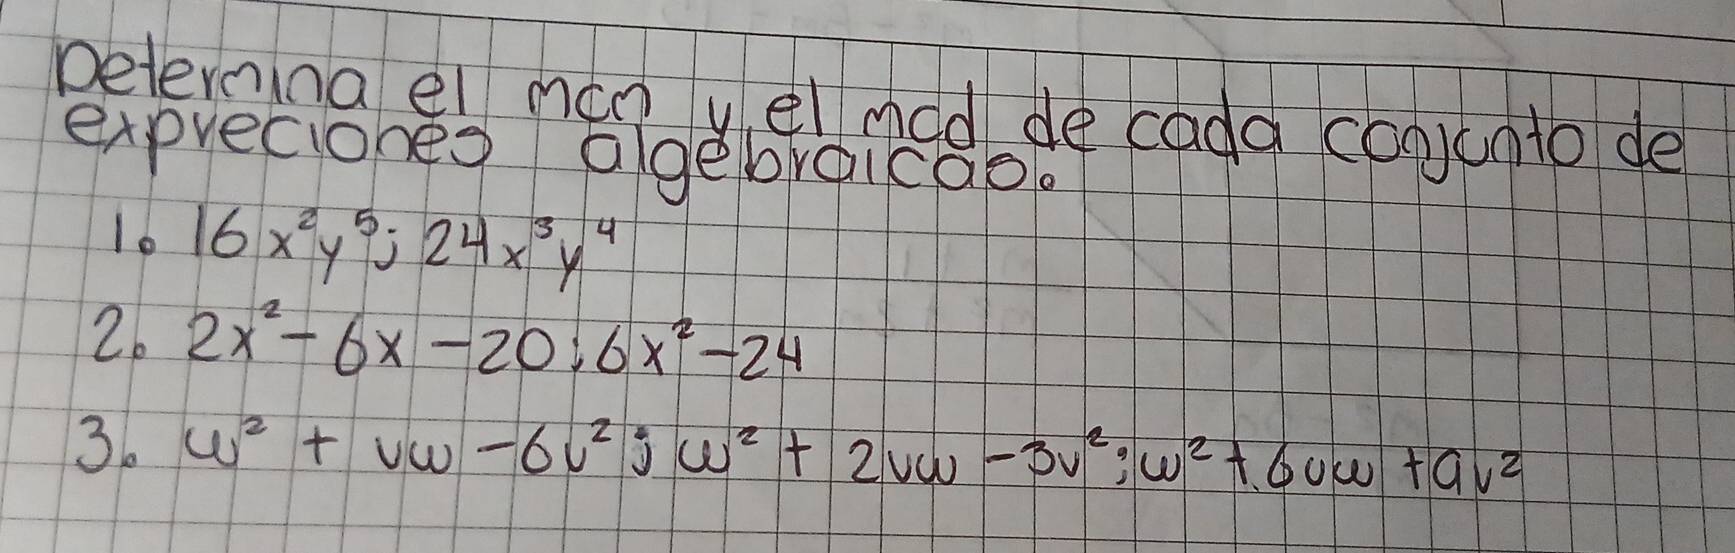 Determina el mcm y el mcd de cada conjunto de
expreciones algebraicas.
1. 16x²y⁵; 24x³y⁴
2. 2x² - 6x - 20; 6x² - 24
3. w² + vw - 6v²; w² + 2vw - 3v²; w² + 6vw + 9v²